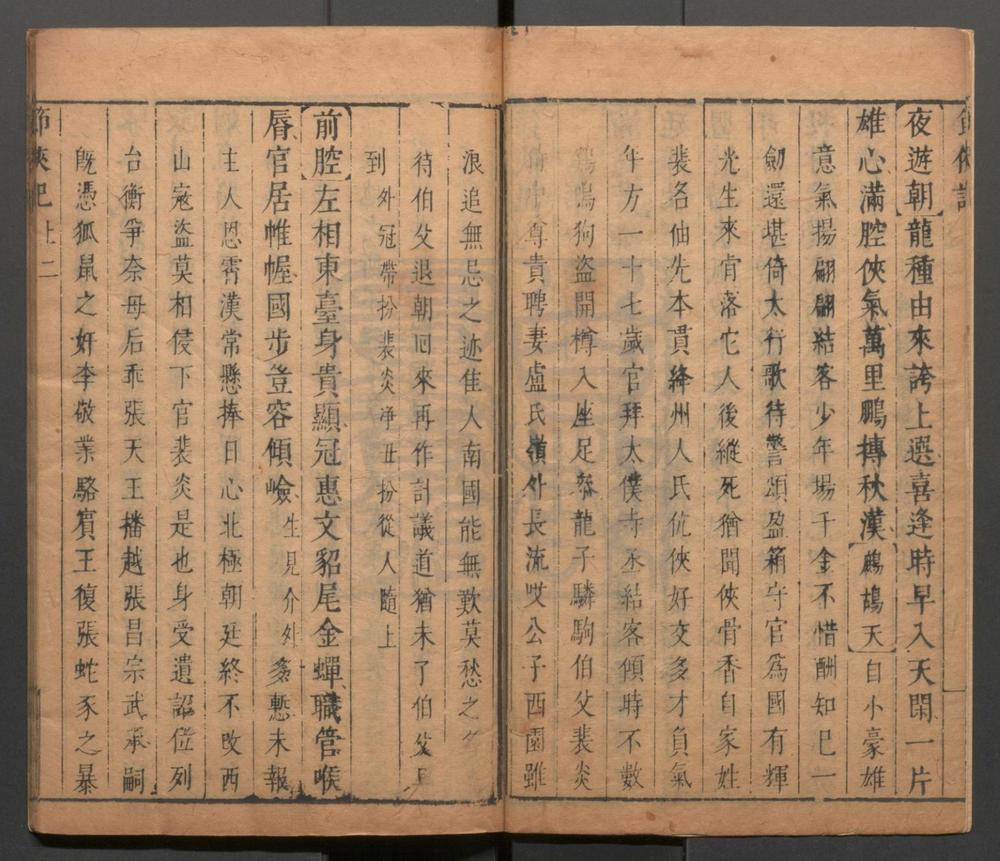 節俠記
【夜遊朝】龍種由來誇上選喜逢時早入天閑一片
雄心滿腔俠氣萬里鵬摶秋漢【鷓鴣天】自小豪雄
意氣揚翩翩結客少年場千金不惜酬知己一
劍還堪倚太行歌待警頌盈箱守官爲國有輝
光生來肯落它人後縱死猶聞俠骨香自家姓
裴名伷先本貫絳州人氏伉俠好交多才負氣
年方一十七歲官拜太僕寺丞結客傾時不數
鷄鳴狗盜開樽入座足黍龍子驎駒伯父裴炎
尊貴聘妻盧氏嶺外長流哎公子西園雖
浪追無忌之迹佳人南國能無歎莫愁之
待伯父退朝囘來再作計議道猶未了伯父
到外冠帶扮裴炎淨丑扮從人隨上
【前腔】左相東臺身貴顯冠惠文貂尾金蟬職管喉
唇官居帷幄國步豈容傾嶮生見介外多慙未報
主人恩霄漢常懸捧日心北極朝廷終不改西
山寇盜莫相侵下官裴炎是也身受遺詔位列
台衡爭奈母后乖張天王播越張昌宗武承嗣
旣憑狐鼠之奸李敬業駱賓王復張蛇豕之暴
節俠記 上 二